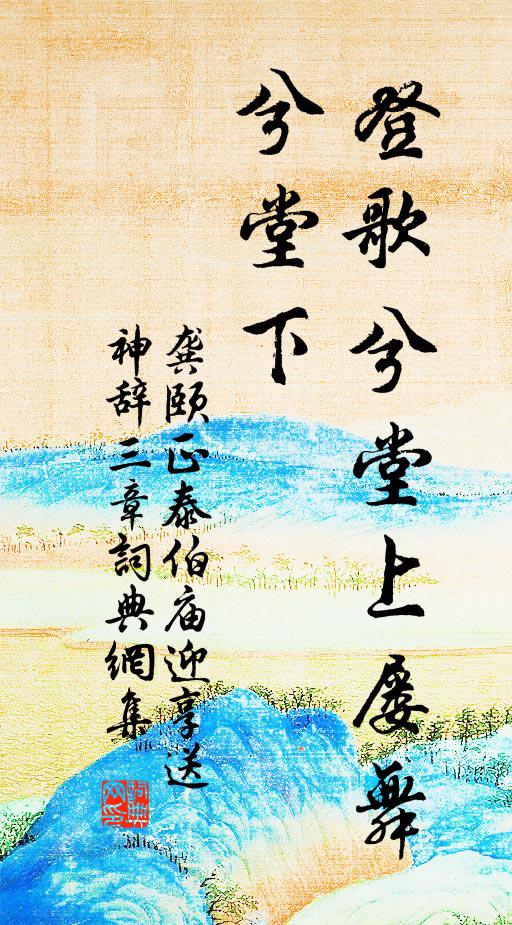 登歌兮堂上屡舞
兮堂下
龚颐正泰伯庙迎享送
神辞三章詞典網集